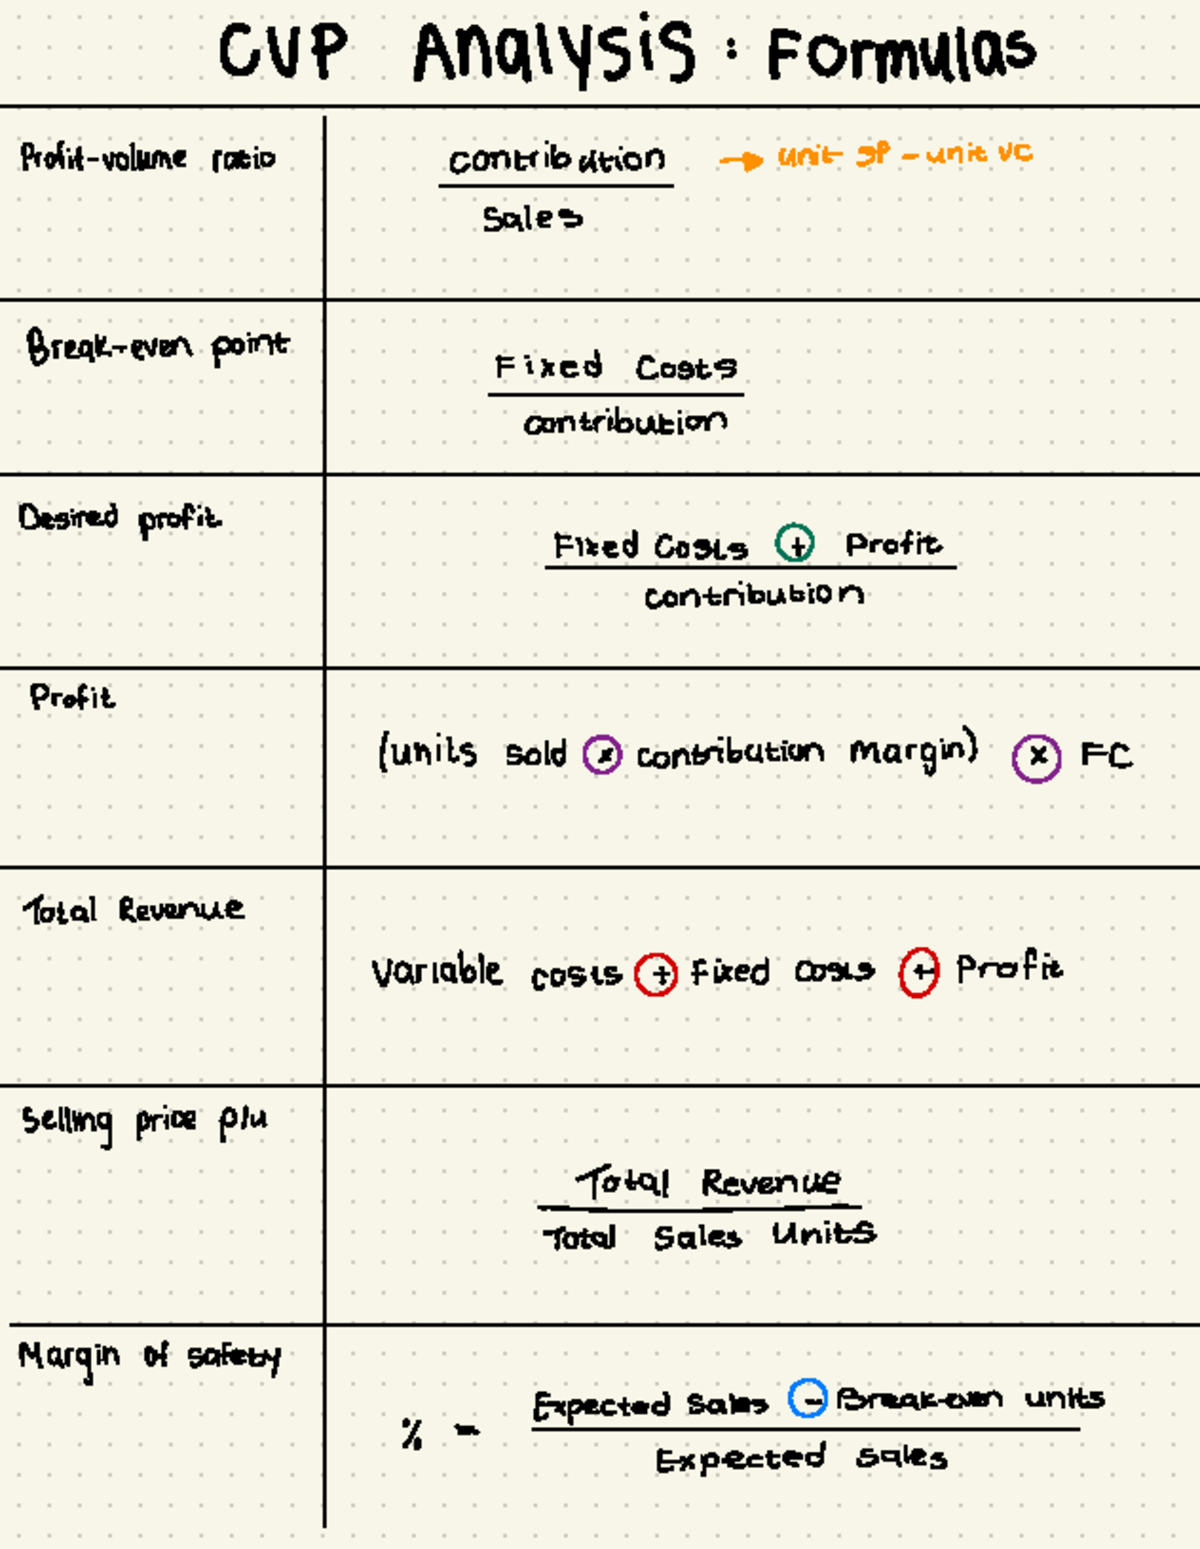 CVP Analysis : Formulas
Profit-volume ratio
contribution → unit SP - unit VC
Sales
Break-even point
Fixed Costs
contribution
Desired profit
Fixed Costs + Profit
contribution
Profit
(units sold × contribution margin) × FC
Total Revenue
Variable costs + fixed costs + Profit
Selling price p/u
Total Revenue
Total Sales Units
Margin of safety
% = Expected Sales - Break-even units
Expected sales